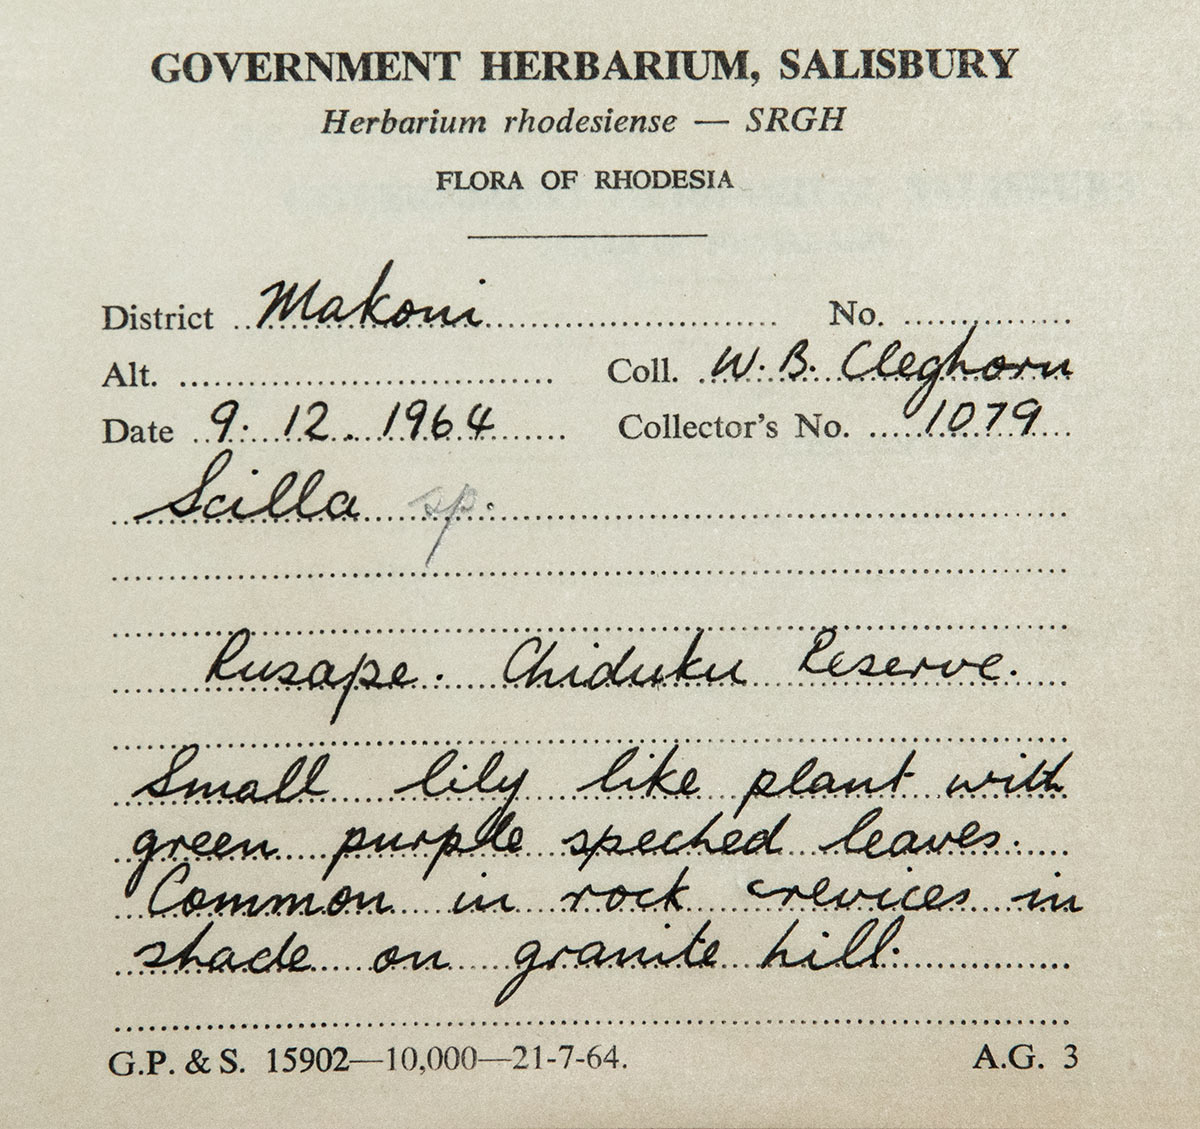 GOVERNMENT HERBARIUM, SALISBURY
Herbarium rhodesiense — SRGH
FLORA OF RHODESIA
District Makoni No.
Alt. Coll. W. B. Cleghorn
Date 9. 12. 1964 Collector's No. 1079
Scilla sp.
Rusape. Chiduku Reserve.
Small lily like plant with
green purple speched leaves.
Common in rock crevices in
shade on granite hill.
G.P. & S. 15902—10,000—21-7-64. A.G. 3